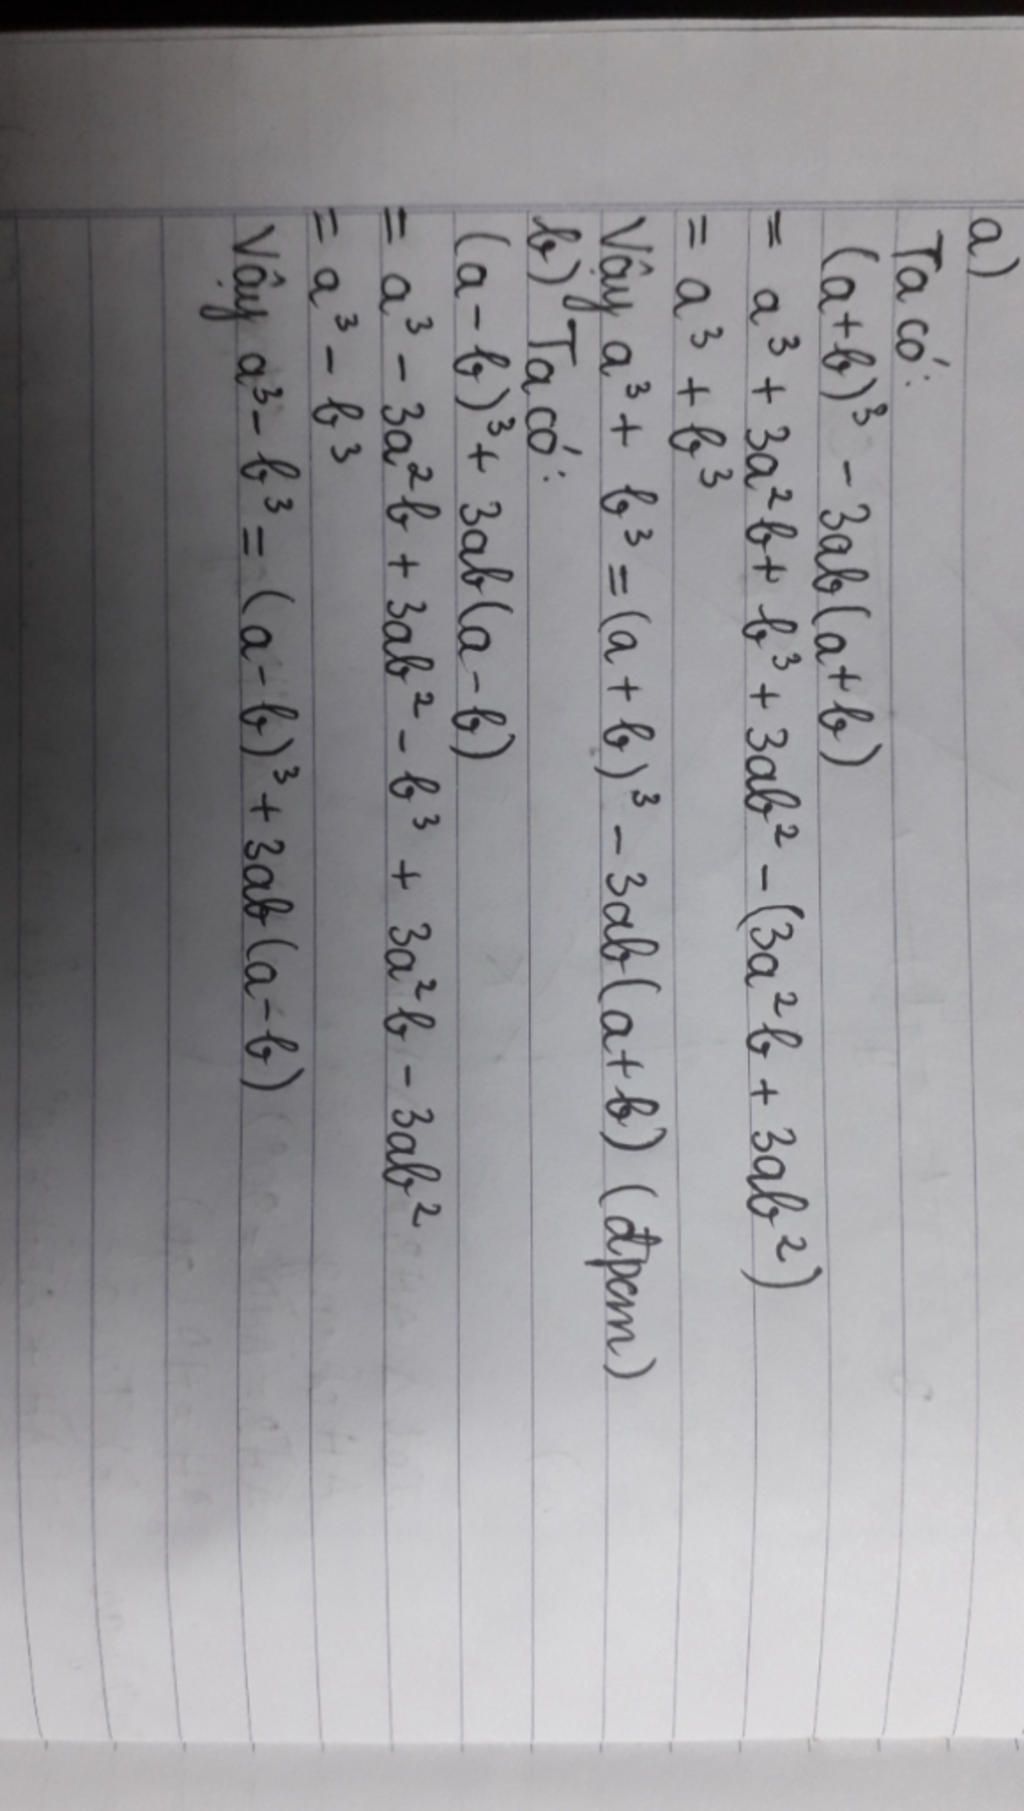 a)
Ta có:
(a+b)³ - 3ab(a+b)
= a³ + 3a²b + b³ + 3ab² - (3a²b + 3ab²)
= a³ + b³
Vậy a³ + b³ = (a + b)³ - 3ab(a+b) (đpcm)
b) Ta có:
(a - b)³ + 3ab(a - b)
= a³ - 3a²b + 3ab² - b³ + 3a²b - 3ab²
= a³ - b³
Vậy a³ - b³ = (a - b)³ + 3ab(a - b)